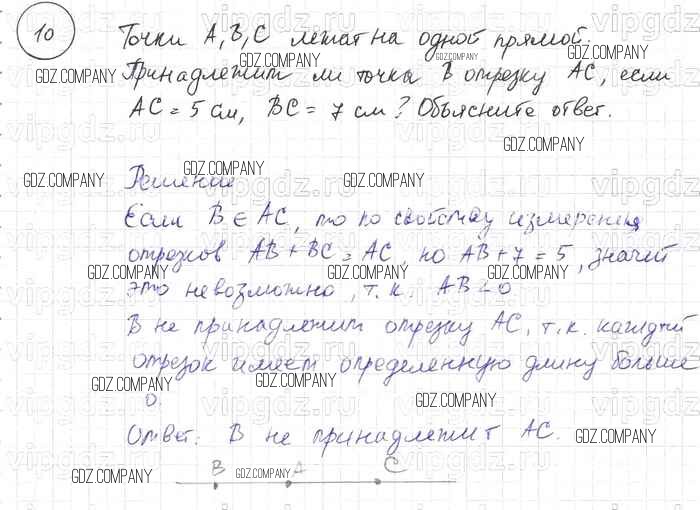 10
Точки A, B, C лежат на одной прямой.
Принадлежит ли точка B отрезку AC, если
AC = 5 см, BC = 7 см? Объясните ответ.
Решение
Если B ∈ AC, то по свойству измерения
отрезков AB + BC = AC, но AB + 7 = 5, значит
это невозможно, т.к. AB < 0
B не принадлежит отрезку AC, т.к. каждый
отрезок имеет определенную длину больше
0.
Ответ: B не принадлежит AC.
B A C